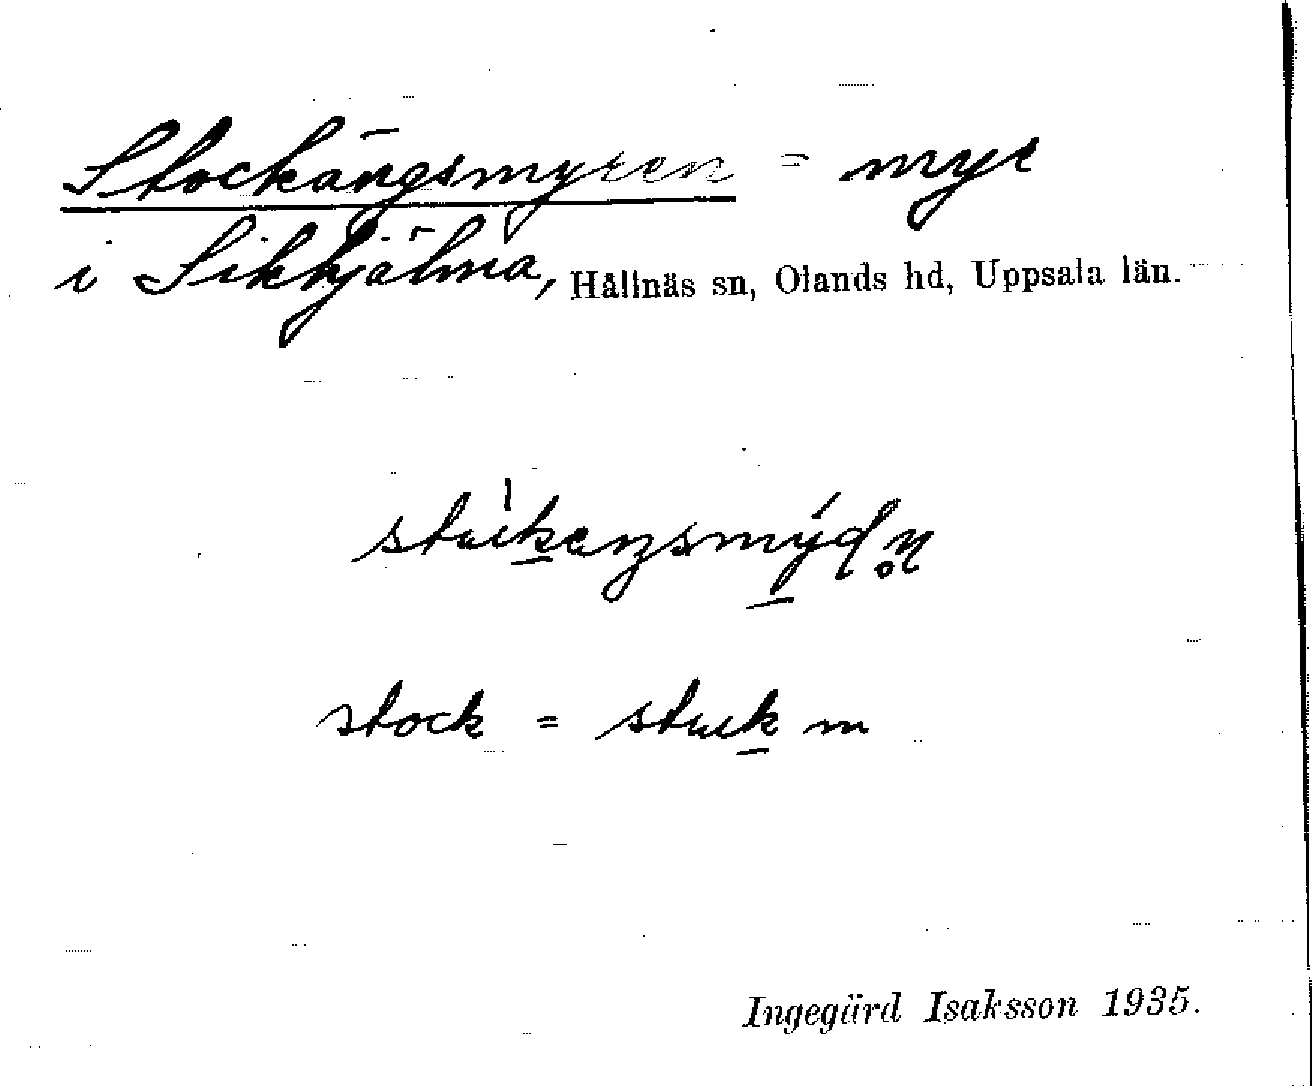 Stockängsmyren = myr
i Sikhjälma, Hållnäs sn, Olands hd, Uppsala län.
stock = stuk m
Ingegärd Isaksson 1935.